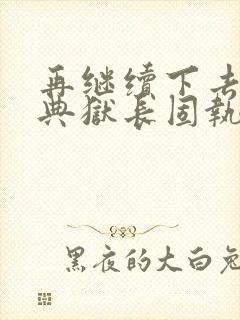 再继续下去
典獄长固執
黑夜的大白兔